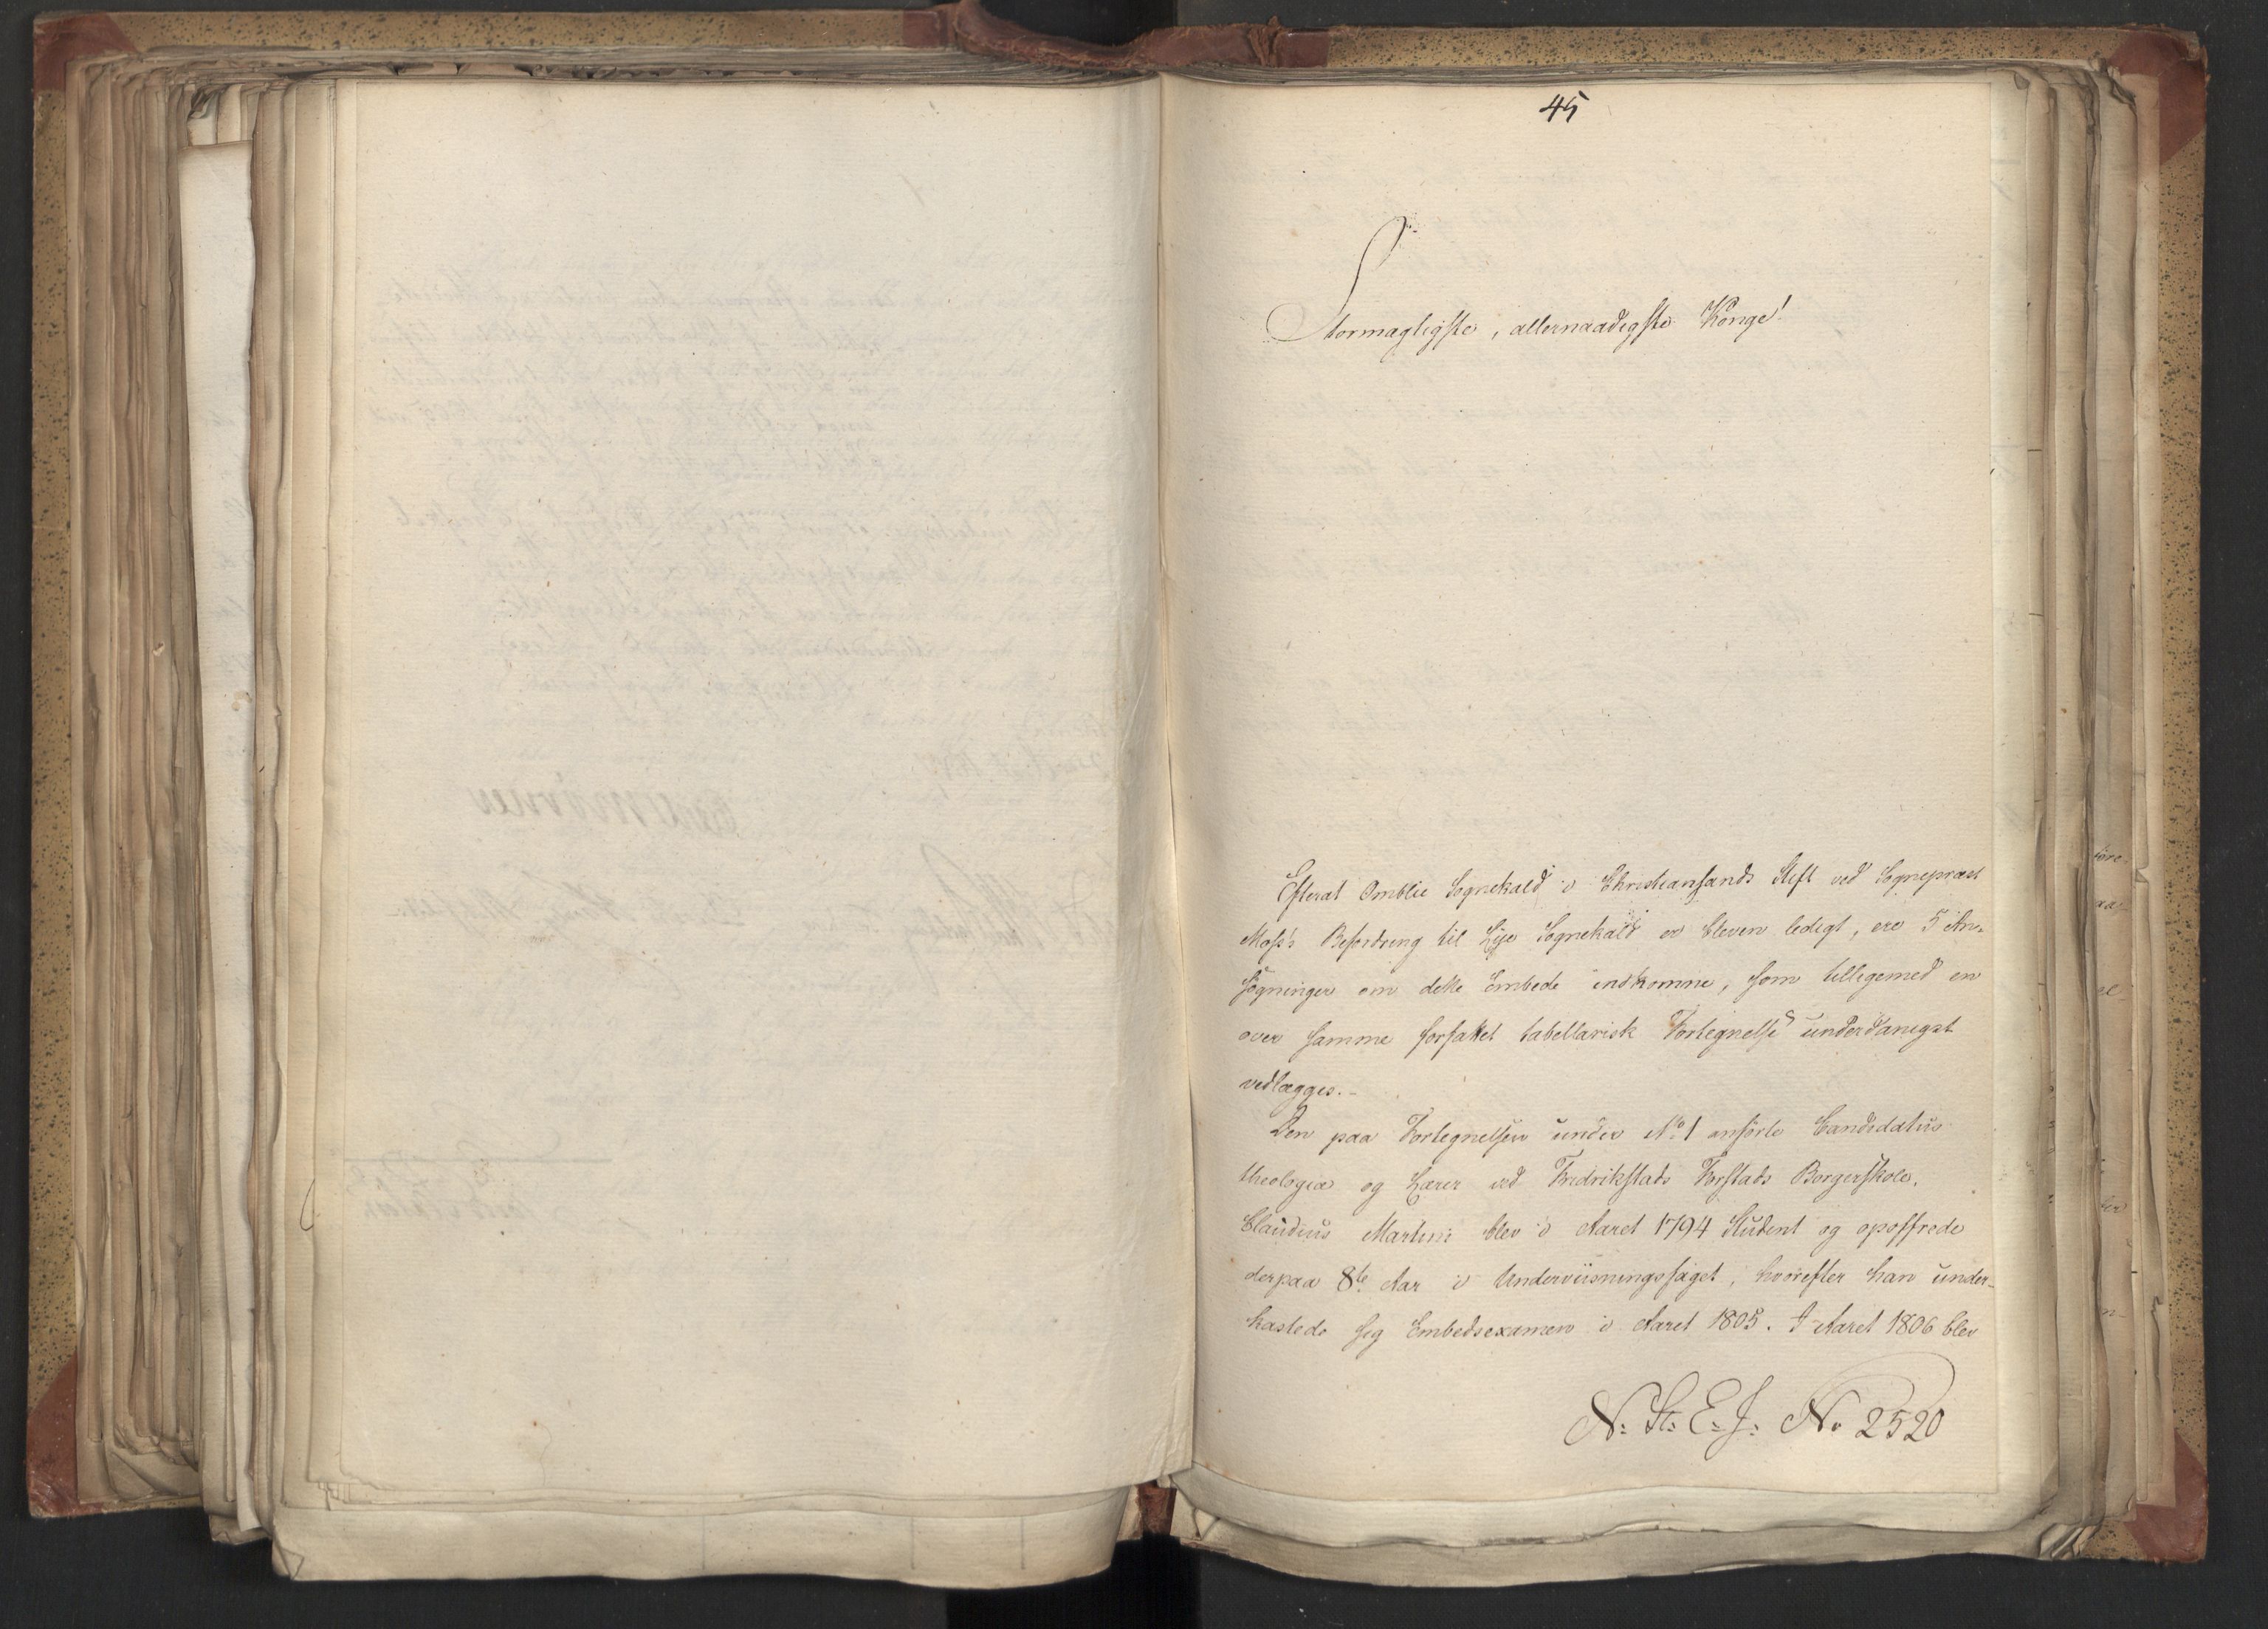 45
Stormægtigste, allernaadigste Konge!
Efterat Omblie Sognekald i Christiansands Stift ved Sognepræst
Moss's Befordring til Lye Sognekald er bleven ledigt, ere 5 An-
søgninger om dette Embede indkomne, som tilligemed en
over samme forfattet tabellarisk Fortegnelse underdanigst
vedlægges.-
Den paa Fortegnelsen under No 1 anførte Candidatus
theologiæ og Lærer ved Fredrikstads Forstads Borgerskole,
Claudius Martini blev i Aaret 1794 Student og opoffrede
derpaa 8te Aar i Underviisningsfaget, hvorefter han under-
kastede sig Embedsexamen i Aaret 1805. I Aaret 1806 blev
N: St: E: J: No 2520